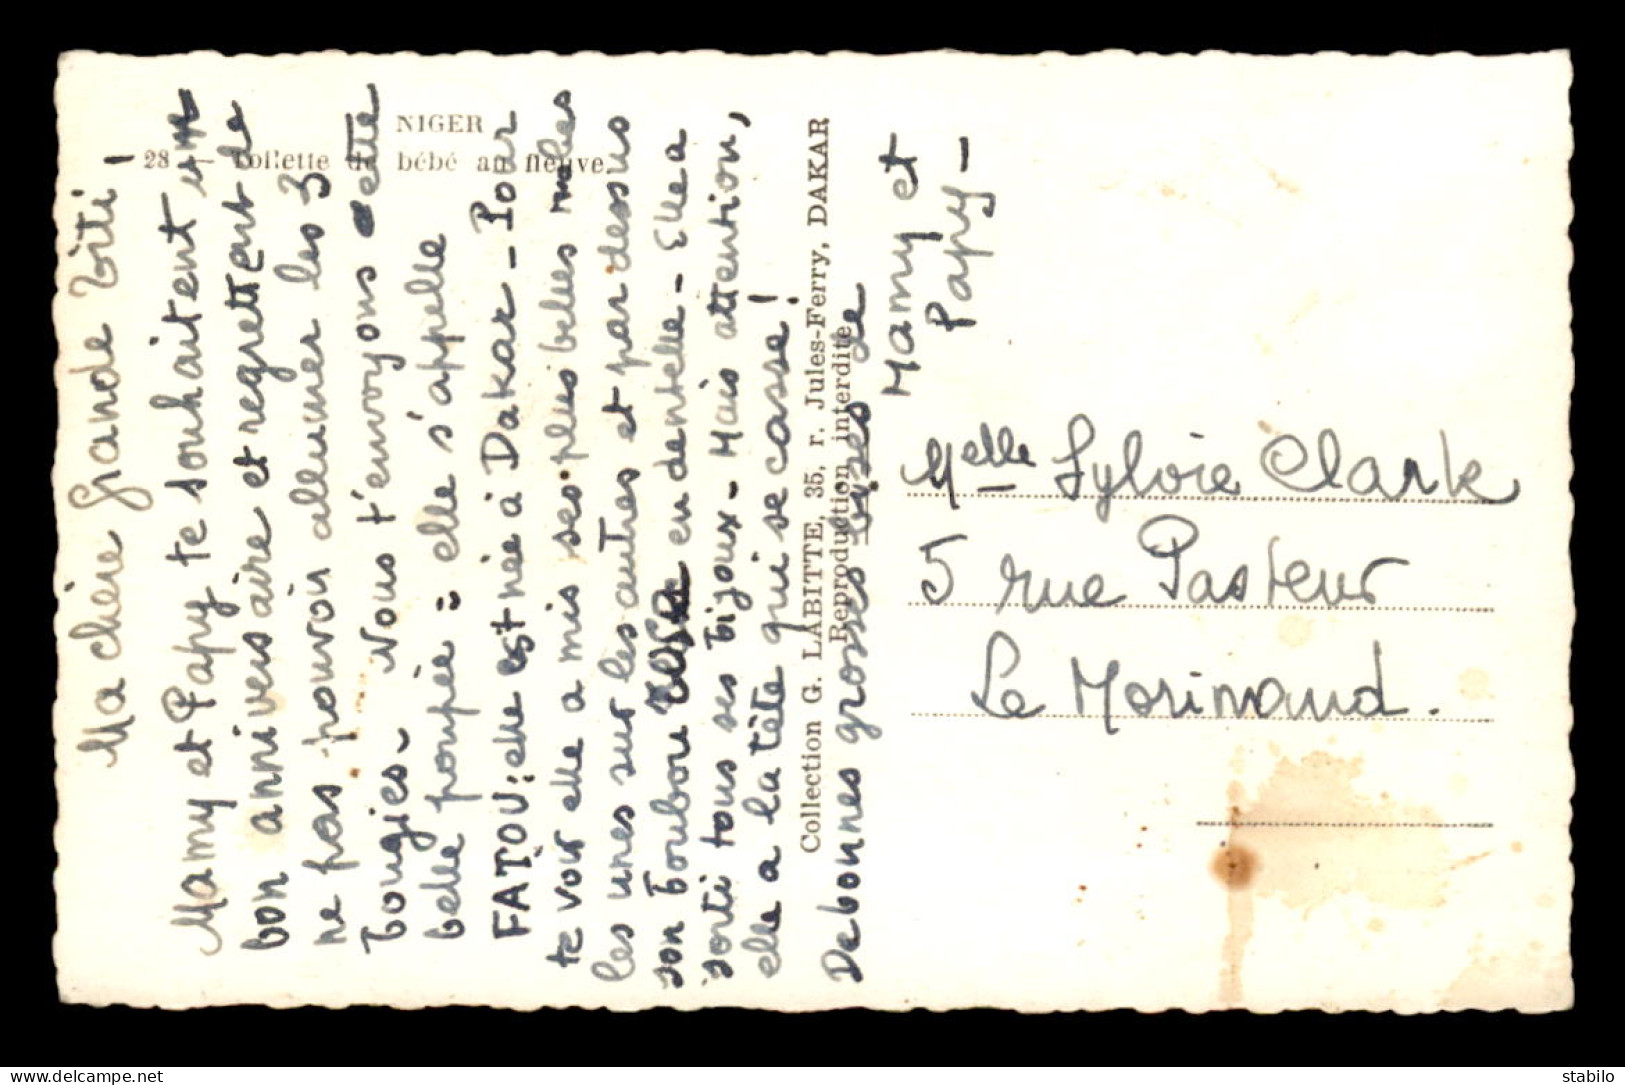 NIGER
28 — Toilette de bébé au fleuve
Ma chère grande Titi !
Mamy et Papy te souhaitent un
bon anniversaire et regrettent de
ne pas pouvoir allumer les 3
bougies - Nous t'envoyons cette
belle poupée = elle s'appelle
FATOU : elle est née à Dakar - Pour
te voir elle a mis ses plus belles
les unes sur les autres et par dessus
son boubou en dentelle - Elle a
sorti tous ses bijoux - Mais attention,
elle a la tête qui se casse !
De bonnes grosses bises de
Mamy et
Papy -
Collection G. LABITTE, 35, r. Jules-Ferry, DAKAR
Reproduction interdite
Melle Sylvie Clark
5 rue Pasteur
Le Morimaud.
stabilo